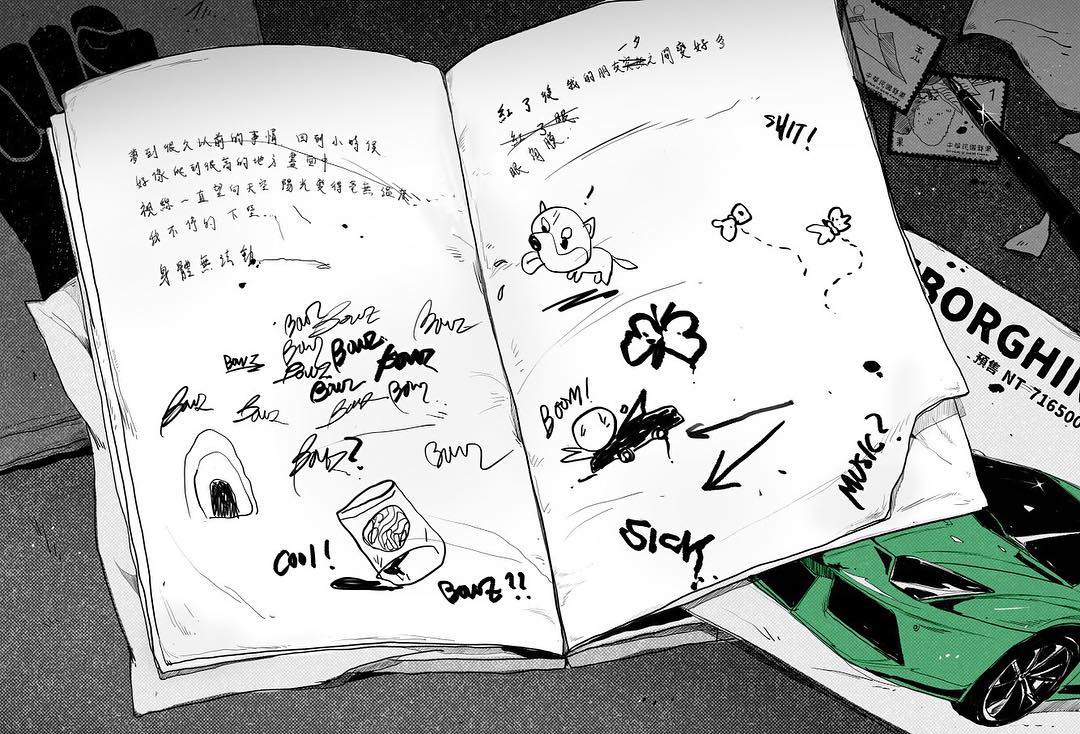 夢到很久以前的事情 回到小時候
好像爬到很高的地方 畫面中
視線一直望向天空 陽光變得毫無溫度
我不停的下墜...
身體無法動
Bouz
Bouz
Bouz
Bouz
Bouz
Bouz
Bouz
Bouz
Bouz
Bouz
Bouz
Bouz
Bouz
Bouz
Bouz?
Bouz
COOl!
Bouz??
一夕
紅了後 我的朋友之間變好多
紅了眼
眼閉眼.
SHIT!
!
BOOM!
MUSIC?
SICK
玉山
中華民國郵票
中華民國郵票
BORGHIN
預售 NT 716500